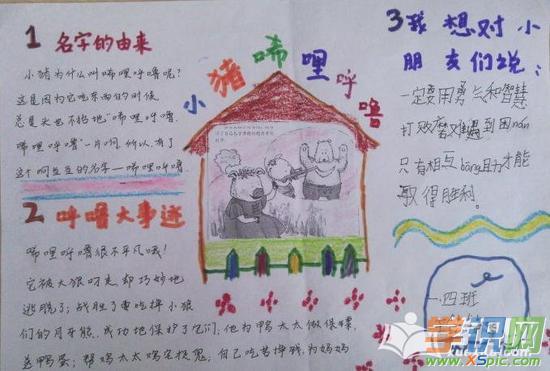 小猪唏哩呼噜
1 名字的由来
小猪为什么叫唏哩呼噜呢?
这是因为它吃东西的时候
总是头也不抬地"唏哩呼噜、
唏哩呼噜"一片响,所以,有了
这个响当当的名字—唏哩呼噜
2 呼噜大事迹
唏哩呼噜很不平凡哦!
它被大狼叼走却巧妙地
逃脱了;战胜了要吃掉小狼
们的月牙熊,成功地保护了它们;他为鸭太太做保镖,
送鸭蛋;帮鸡太太捉鬼,自己吃苦挣钱,为妈妈
3 我想对小
朋友们说:
一定要用勇气和智慧
打败磨难,遇到困nan
只有相互bāng助才能
取得胜利。
一四班
学识网
www.XSpic.com